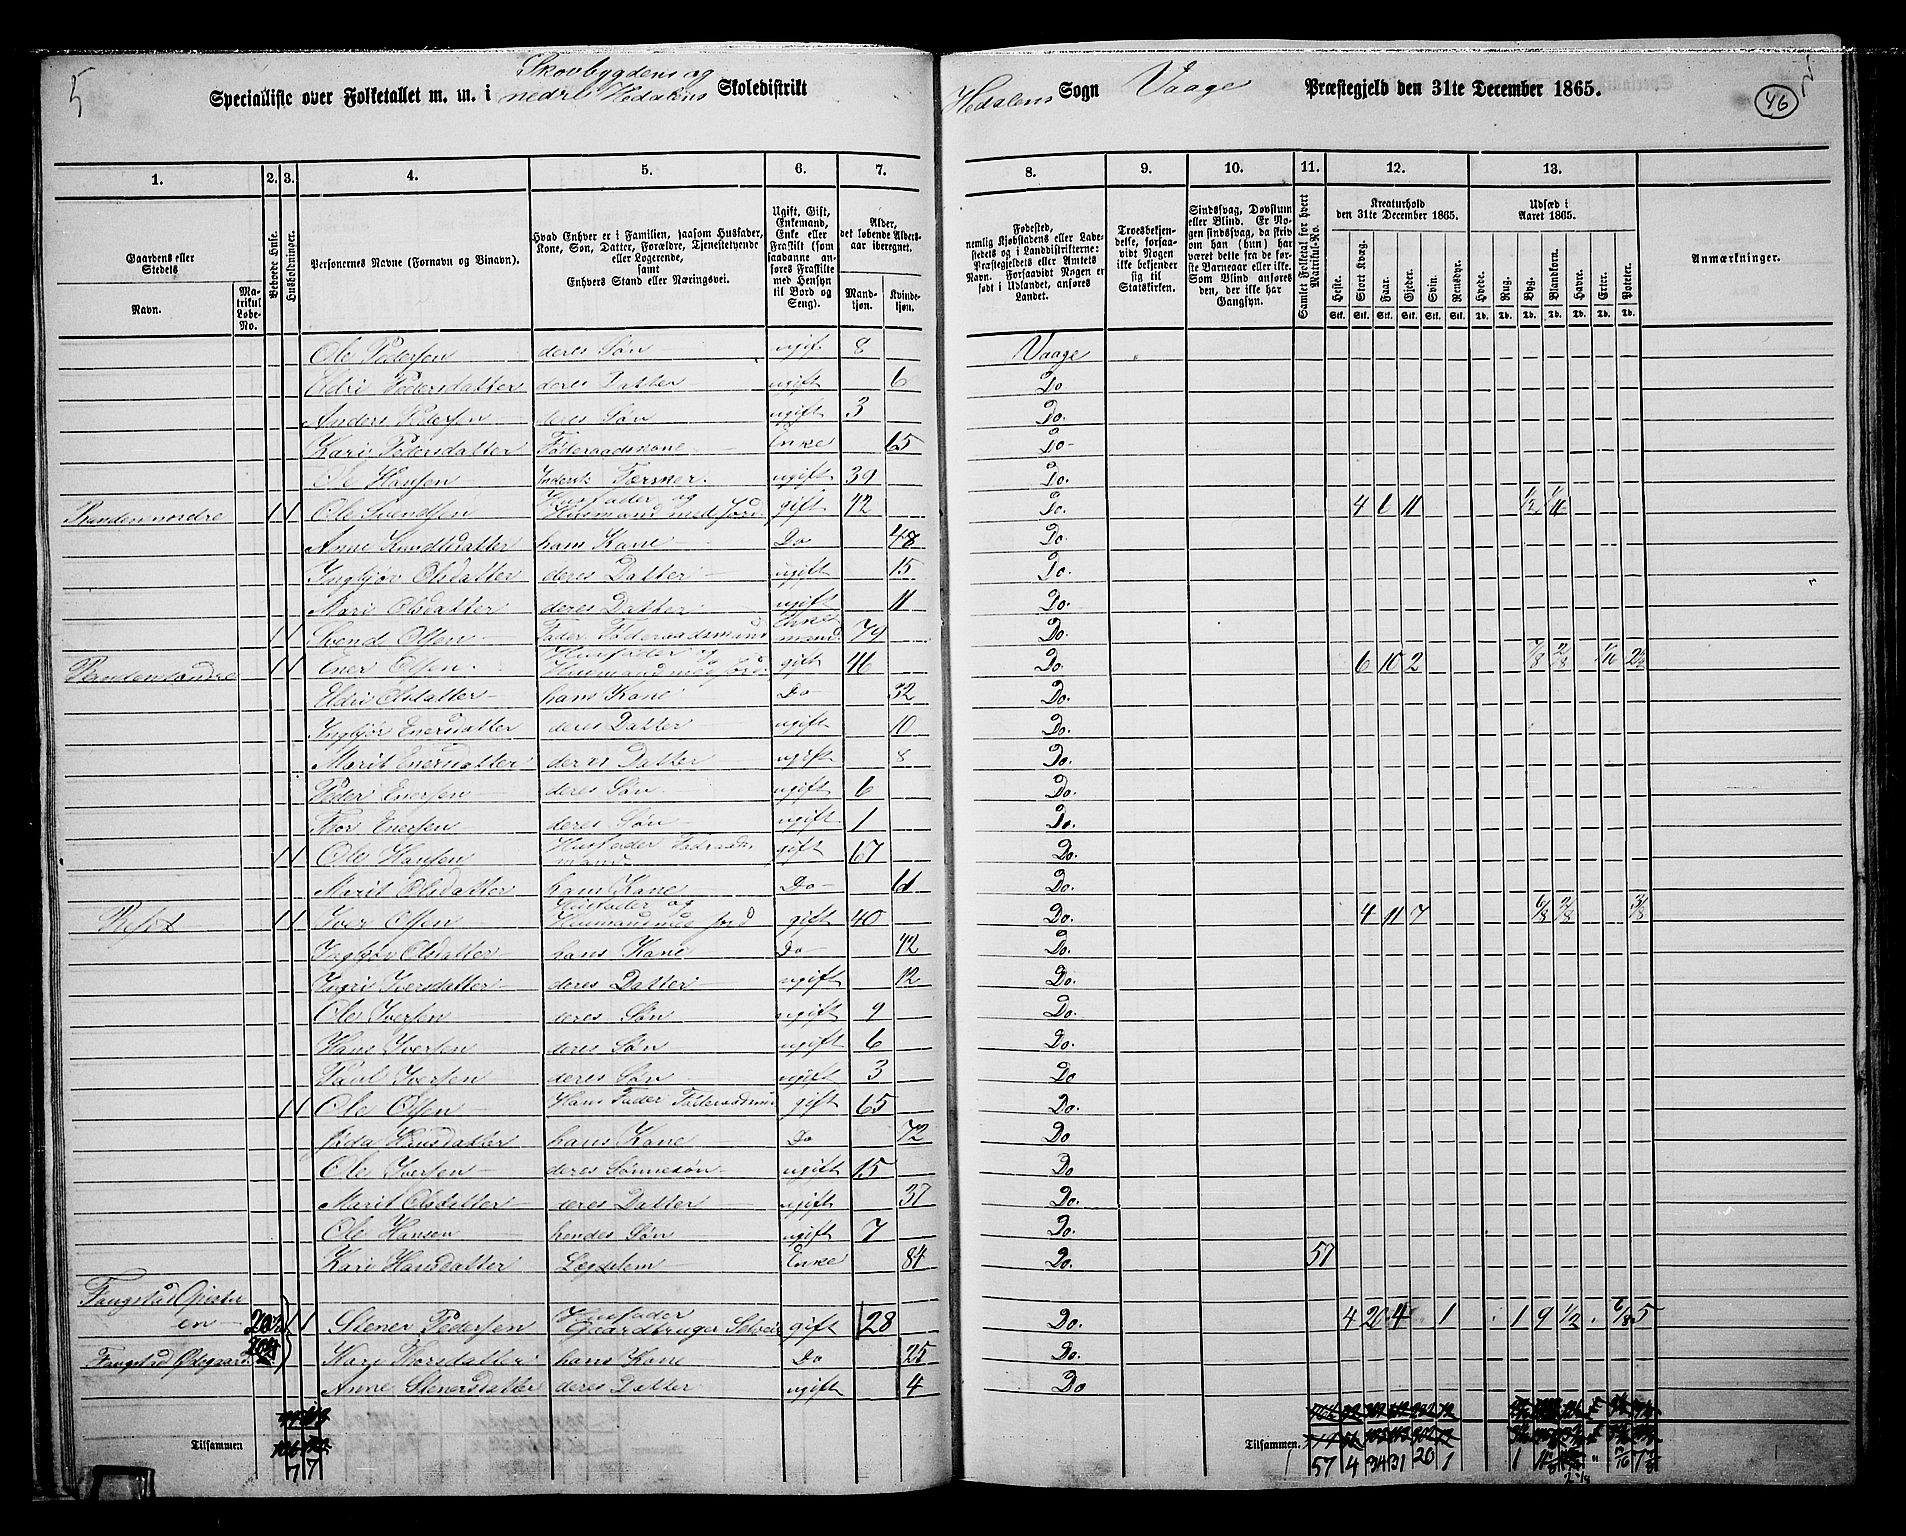 5 Skovbygdens og 5
Specialliste over Folketallet m. m. i nedre Hedalens Skoledistrikt Hedalens Sogn Vaage Præstegjeld den 31te December 1865.
46
1. 2. 3. 4. 5. 6. 7. 8. 9. 10. 11. 12. 13.
Gaardens eller Stedets
Navn.
Matrikul Løbe-No.
Beboede Huse.
Husholdninger.
Personernes Navne (Fornavn og Binavn).
Hvad Enhver er i Familien, saasom Husfader, Kone, Søn, Datter, Forældre, Tjenestetyende eller Logerende, samt Enhvers Stand eller Næringsvei.
Ugift, Gift, Enkemand, Enke eller Fraskilt (som saadanne anføres Fraskilte med Hensyn til Bord og Seng).
Alder, det løbende Aldersaar iberegnet.
Mandkjøn. Kvindekjøn.
Fødested, nemlig Kjøbstadens eller Ladestedets og i Landdistrikterne: Præstegjeldets eller Amtets Navn. Forsaavidt Nogen er født i Udlandet, anføres Landet.
Troesbekjendelse, forsaavidt Nogen ikke bekjender sig til Statskirken.
Sindssvag, Døvstum eller Blind. Er Nogen sindssvag, da skriv om han (hun) har været dette fra de første Barneaar eller ikke. Som Blind anføres den, der ikke har Gangsyn.
Samlet Folketal for hvert Matrikul-No.
Kreaturhold den 31te December 1865.
Heste. Stort Kvæg. Faar. Gjeder. Svin. Rensdyr.
Udsæd i Aaret 1865.
Hvede. Rug. Byg. Blandkorn. Havre. Erter. Poteter.
Anmærkninger.
Ole Pedersen deres Søn ugift 8 Vaage
Eldri Pedersdatter deres Datter ugift 6 Do
Anders Pedersen deres Søn ugift 3 Do.
Kari Pedersdatter Føderaadskone Enke 65 Do
Ole Hansen Inderst Tærsker. ugift 39 Do.
Randen nordre 1 1 Ole Svendsen Husfader og Husmand med Jord gift 42 Do. 4 6 11
Anne Knudsdatter hans Kone Do 48 Do.
Ingbjør Olsdatter deres Datter ugift 15 Do.
Mari Olsdatter deres Datter ugift 11 Do.
1 1 Svend Olsen Fader Føderaadsmand Enkemand 79 Do.
Randen søndre 1 1 Ener Olsen Husfader og Husmand med Jord gift 46 Do. 6 10 2 7/8 2/8 1/16 2 4/8
Eldri Olsdatter hans Kone Do 32 Do.
Ingbjør Enersdatter deres Datter ugift 10 Do.
Marit Enersdatter deres Datter ugift 8 Do.
Peder Enersen deres Søn ugift 6 Do.
Thor Enersen deres Søn ugift 1 Do.
1 1 Ole Hansen Husfader Fødraadsmand gift 67 Do.
Marit Olsdatter hans Kone Do 61 Do.
1 1 Iver Olsen Husfader og Husmand med Jord gift 40 Do. 4 11 7 6/8 2/8
Ingbjør Olsdatter hans Kone Do 42 Do.
Ingri Iversdatter deres Datter ugift 12 Do.
Ole Iversen deres Søn ugift 9 Do.
Hans Iversen deres Søn ugift 6 Do.
Paul Iversen deres Søn ugift 3 Do
1 1 Ole Olsen Hans Fader Føderaadsm. gift 65 Do.
Hansdatter hans Kone Do 72 Do
Ole Iversen deres Sønnesøn ugift 15 Do
Marit Olsdatter deres Datter ugift 37 Do.
Ole Hansen hendes Søn ugift 7 Do.
Kari Hansdatter Lægdslem Enke 84 Do. 57
Faugstad
1 1 Stener Pedersen Husfader Gaardbruger Selveier gift 28 Do. 4 20 4 1 1 9 1/2 6/8 5
Faugstad Ødegaard Kari Thorsdatter hans Kone Do 25 Do.
Anne Stenersdatter deres Datter ugift 4 Do
Tilsammen 7 7 Tilsammen. 57 4 34 31 20 1 1